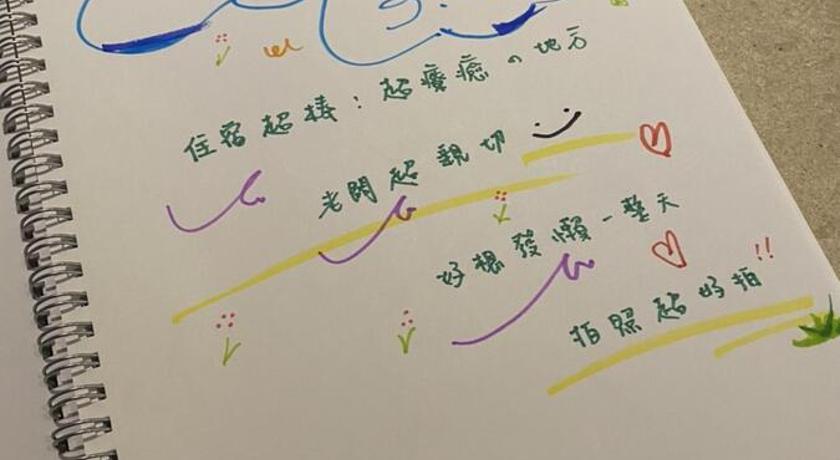 住宿超棒:超療癒的地方
老闆超親切
好想發懶一整天
拍照超好拍!!